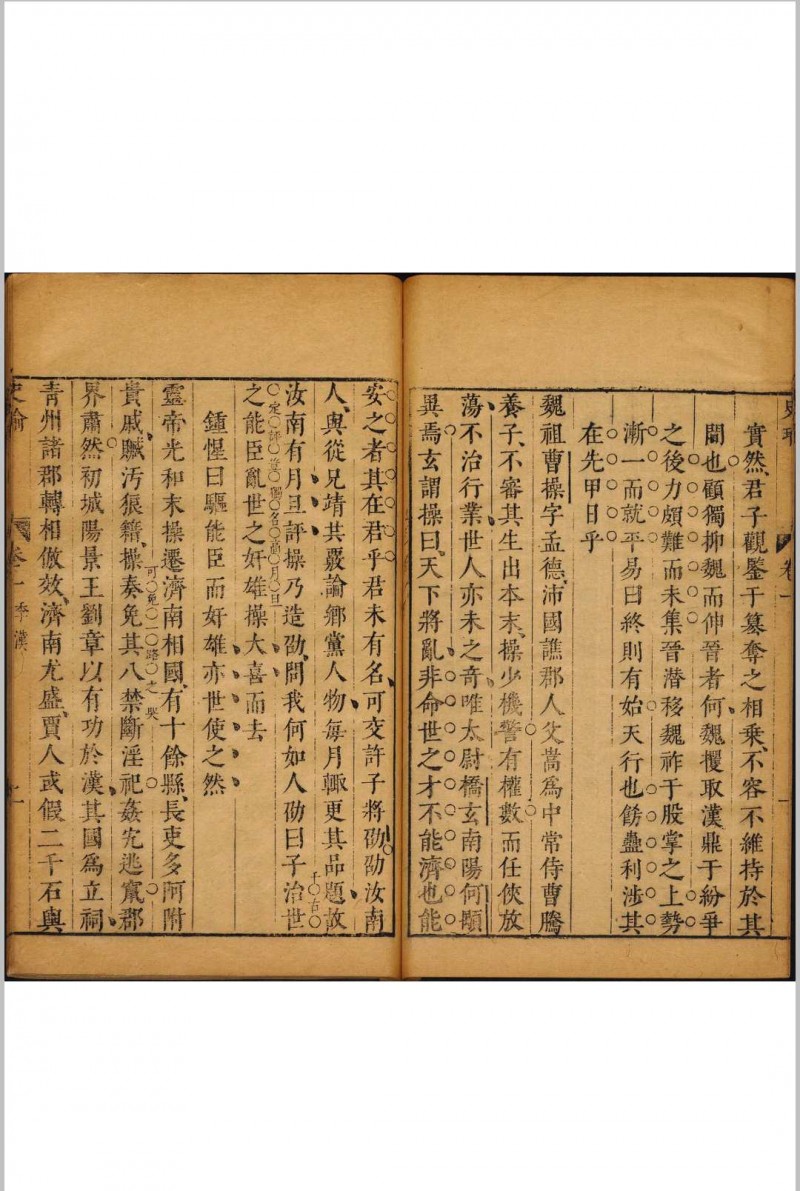 史
卷一
一
實然君子觀鑒于篡奪之相乗不容不維持於其
間也顧獨抑魏而伸晉者何魏攫取漢鼎于紛爭
之後力頗難而未集晉潜移魏祚于股掌之上勢
漸一而就平易曰終則有始天行也飭蠱利渉其
在先甲日乎
魏祖曹操字孟德沛國譙郡人父嵩爲中常侍曹騰
養子不審其生出本末操少機警有權數而任俠放
蕩不治行業世人亦未之竒唯太尉橋玄南陽何顒
異焉玄謂操曰天下將亂非命世之才不能濟也能
安之者其在君乎君未有名可交許子將劭劭汝南
人與從兄靖共覈論鄉黨人物每月輒更其品題故
汝南有月旦評操乃造劭問我何如人劭曰子治世
千古
定評豈賜名爲月旦
之能臣亂世之奸雄操大喜而去
鍾惺曰驅能臣而奸雄亦世使之然
靈帝光和末操遷濟南相國有十餘縣長吏多阿附
貴戚贓污狼籍操奏免其八禁斷淫祀姦宄逃竄郡
可免一路之哭
界肅然初城陽景王劉章以有功於漢其國爲立祠
青州諸郡轉相倣效濟南尤盛賈人或假二千石輿
史
卷一 季漢